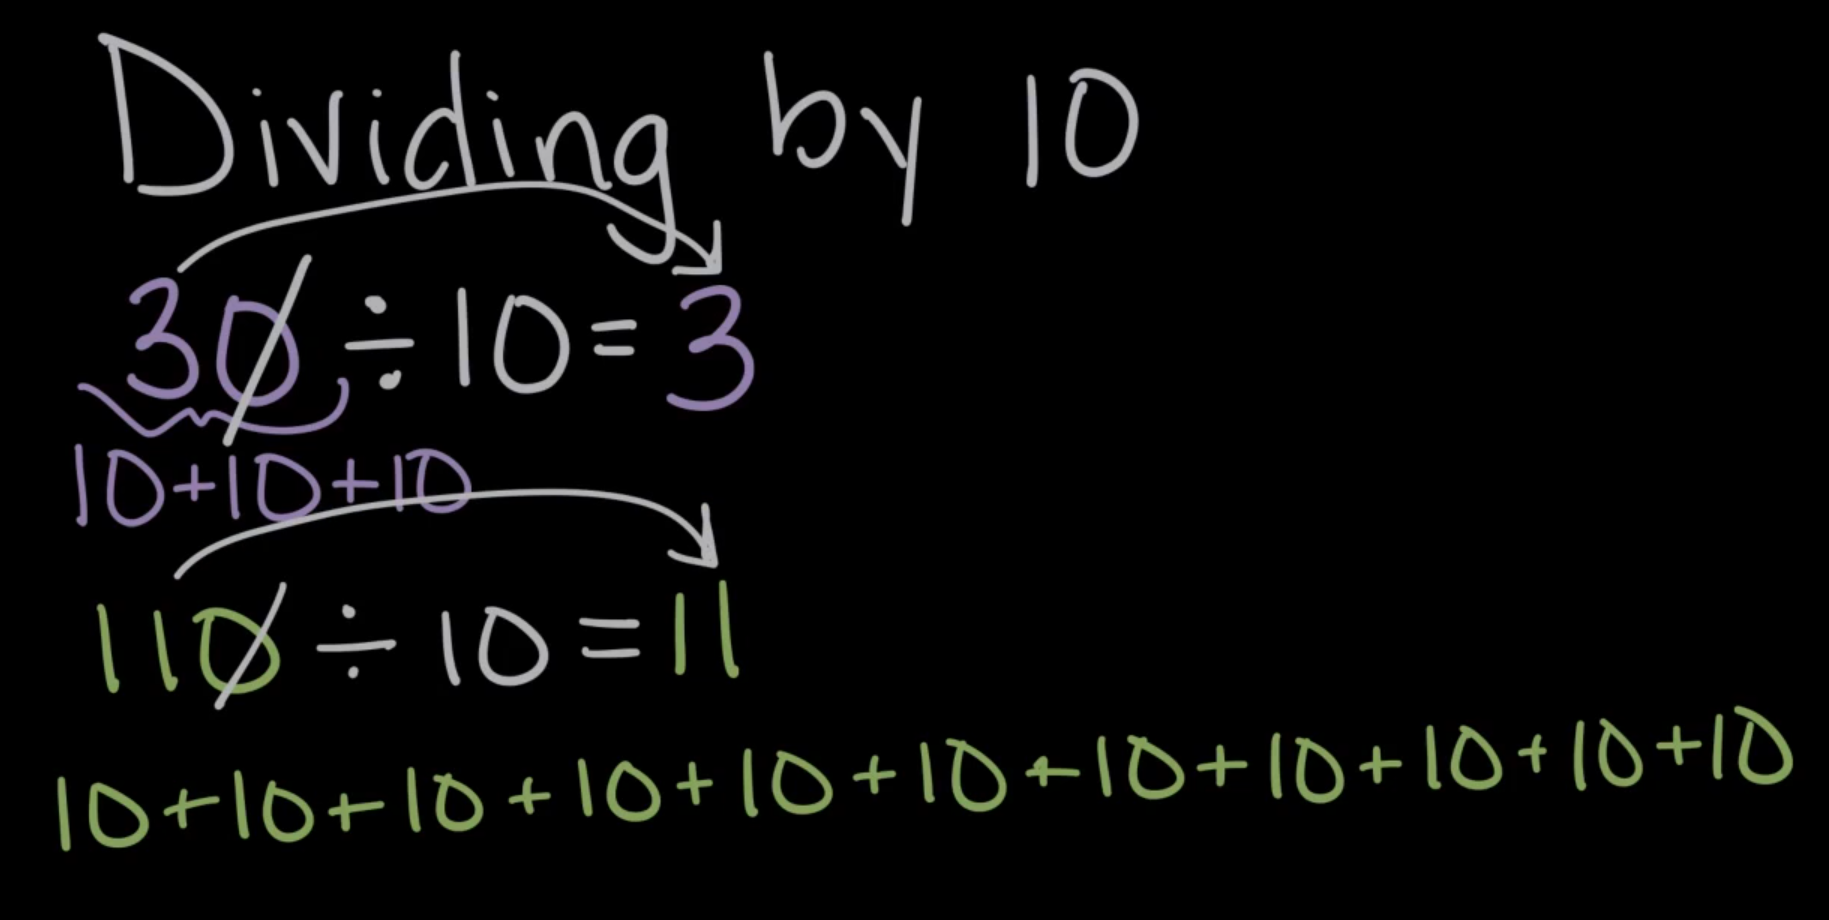 Dividing by 10
30 ÷ 10 = 3
10+10+10
110 ÷ 10 = 11
10+10+10+10+10+10+10+10+10+10+10